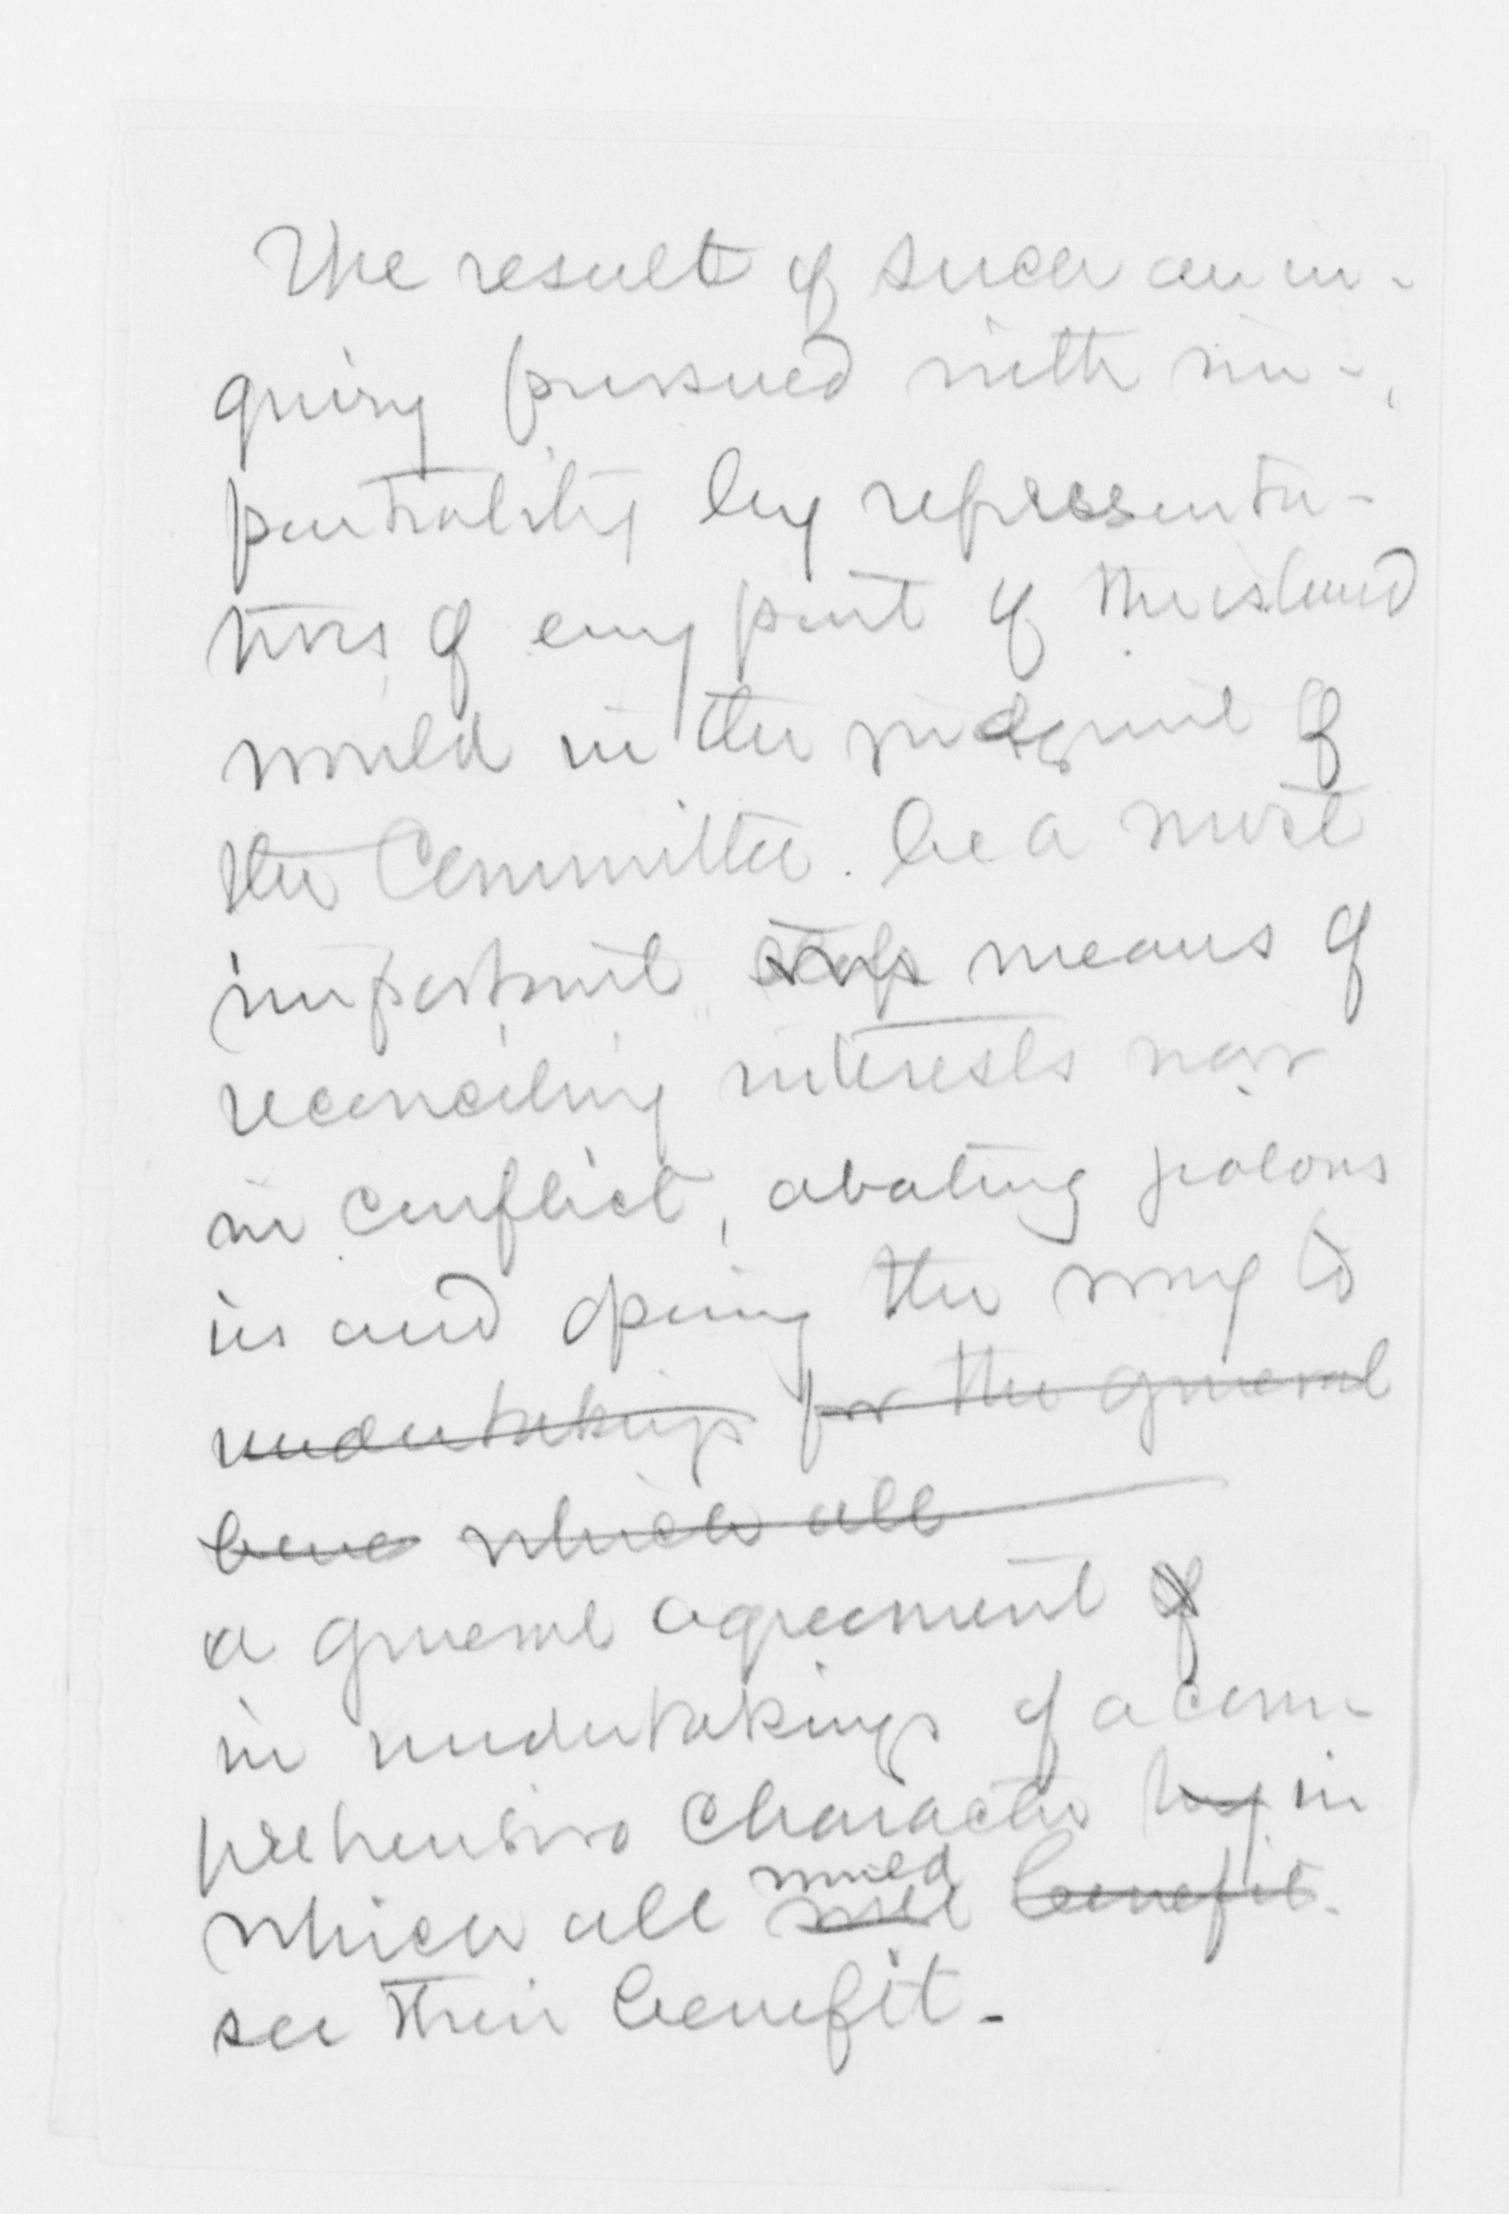 The result of such an in-
quiry pursued with im-
partiality by representa-
tives of every part of the island
would in the judgment of
the Committee be a most
important step means of
reconciling interests now
in conflict, abating jealous
ies and opening the way to
undertakings for the general
bene which all
a general agreement of
in undertakings of a com-
prehensive character by in
which all would will benefit.
see their benefit.